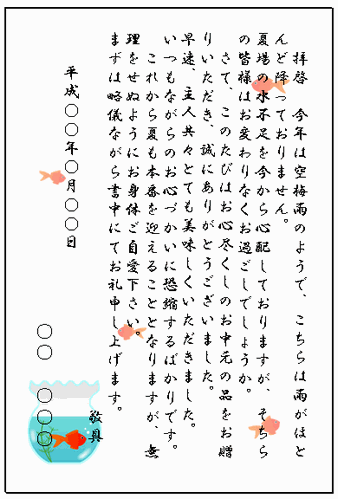 拝啓　今年は空梅雨のようで、こちらは雨がほと
んど降っておりません。
夏場の水不足を今から心配しておりますが、そちら
の皆様はお変わりなくお過ごしでしょうか。
さて、このたびはお心尽くしのお中元の品をお贈
りいただき、誠にありがとうございました。
早速、主人共々とても美味しくいただきました。
いつもながらのお心づかいに恐縮するばかりです。
これから夏も本番を迎えることとなりますが、無
理をせぬようにお身体ご自愛下さい。
まずは略儀ながら書中にてお礼申し上げます。
敬具
平成〇〇年〇月〇〇日
〇〇　〇〇〇